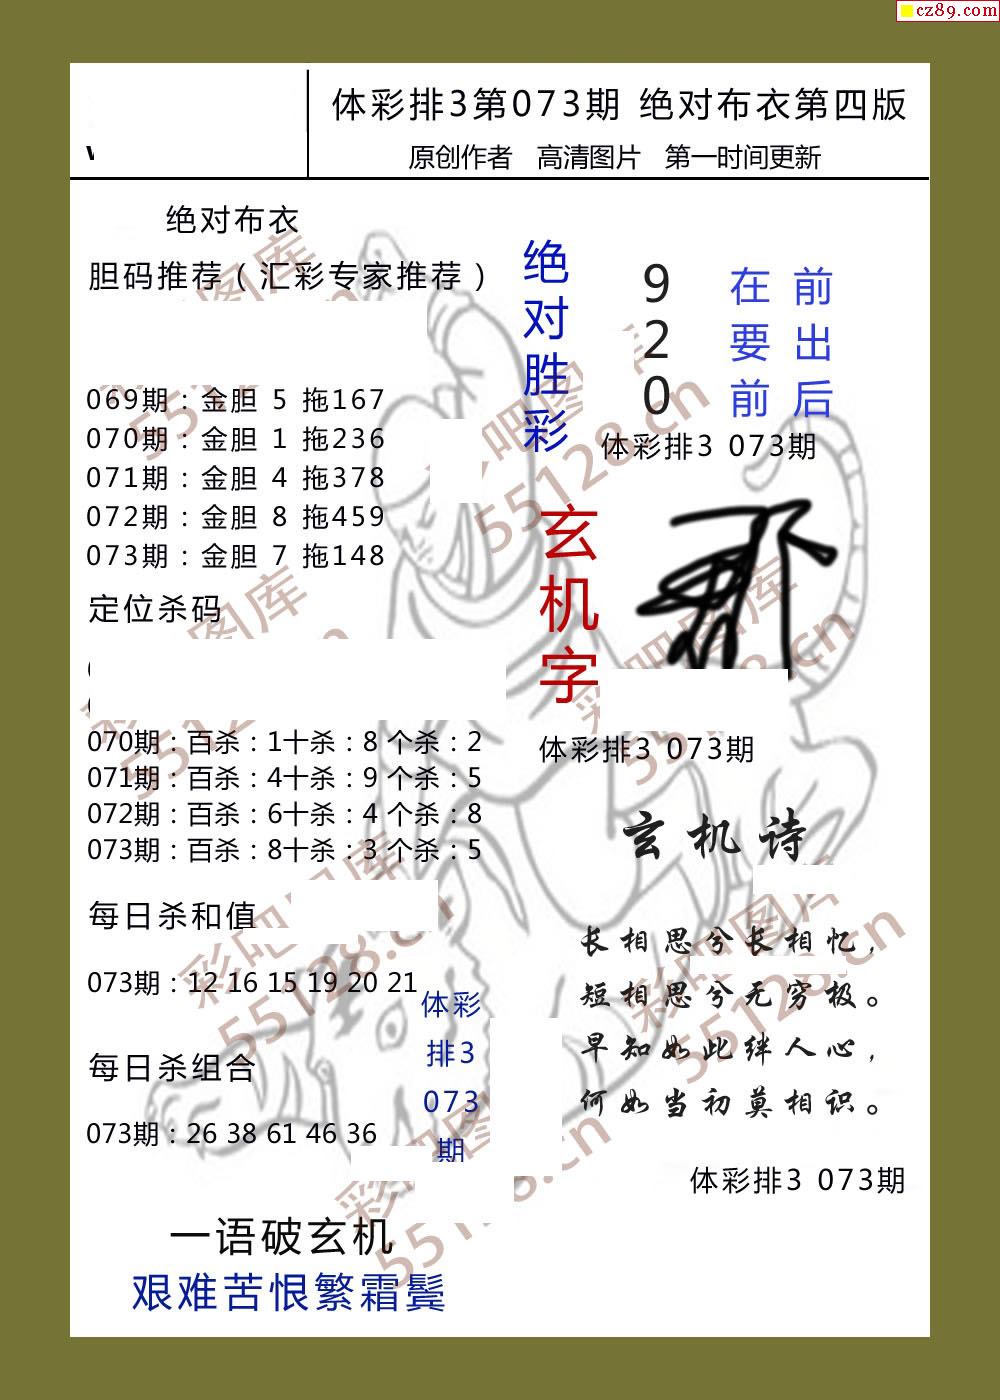 cz89.com
体彩排3第073期 绝对布衣第四版
原创作者 高清图片 第一时间更新
绝对布衣
胆码推荐（汇彩专家推荐）
069期：金胆 5 拖167
070期：金胆 1 拖236
071期：金胆 4 拖378
072期：金胆 8 拖459
073期：金胆 7 拖148
定位杀码
070期：百杀：1十杀：8 个杀：2
071期：百杀：4十杀：9 个杀：5
072期：百杀：6十杀：4 个杀：8
073期：百杀：8十杀：3 个杀：5
每日杀和值
073期：12 16 15 19 20 21
每日杀组合
073期：26 38 61 46 36
体彩
排3
073
期
一语破玄机
艰难苦恨繁霜鬓
绝对胜彩
9
2
0
在 前
要 出
前 后
体彩排3 073期
玄机字
体彩排3 073期
玄机诗
长相思兮长相忆，
短相思兮无穷极。
早知如此绊人心，
何如当初莫相识。
体彩排3 073期
彩吧图库
55128.cn